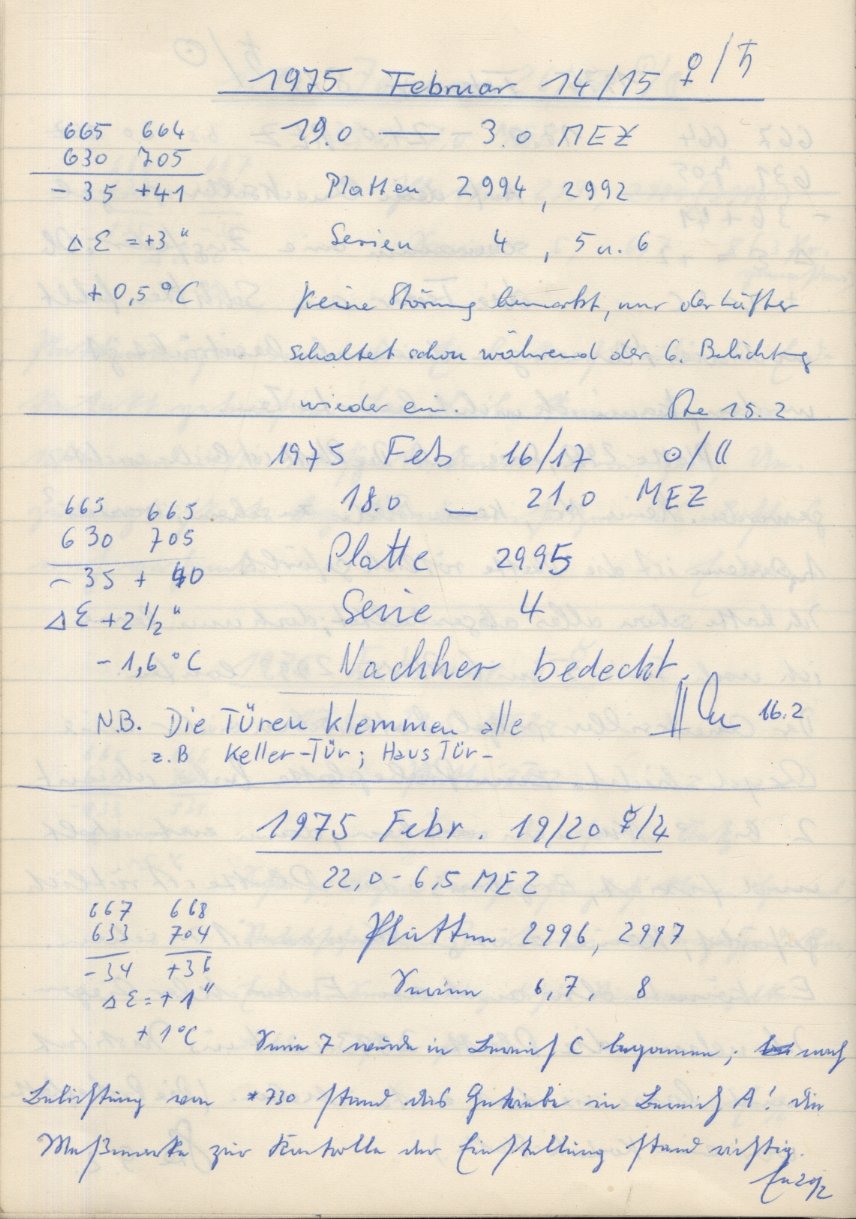 1975 Februar 14/15 ♀/♄
665 664 19.0 — 3.0 MEZ
630 705
-35 +41 Platten 2994, 2992
Δε = +3" Serien 4, 5 u. 6
+0,5°C Keine Störung bemerkt, nur der Lüfter
schaltet schon während der 6. Belichtung
wieder ein. 15.2
1975 Feb 16/17 ☉/☾
665 665 18.0 — 21.0 MEZ
630 705
-35 + 40 Platte 2995
Δε +2 1/2" Serie 4
-1,6°C Nachher bedeckt.
N.B. Die Türen klemmen alle 16.2
z.B Keller-Tür; Haus Tür-
1975 Febr. 19/20 ☿/♃
22,0 - 6,5 MEZ
667 668
633 704 Platten 2996, 2997
-34 +36
Δε = +1" Serien 6, 7, 8
+1°C
Serie 7 wurde in Bereich C begonnen; nach
Belichtung von *730 stand das Getriebe in Bereich A! die
Meßmarke zur Kontrolle der Einstellung stand richtig.
20/2